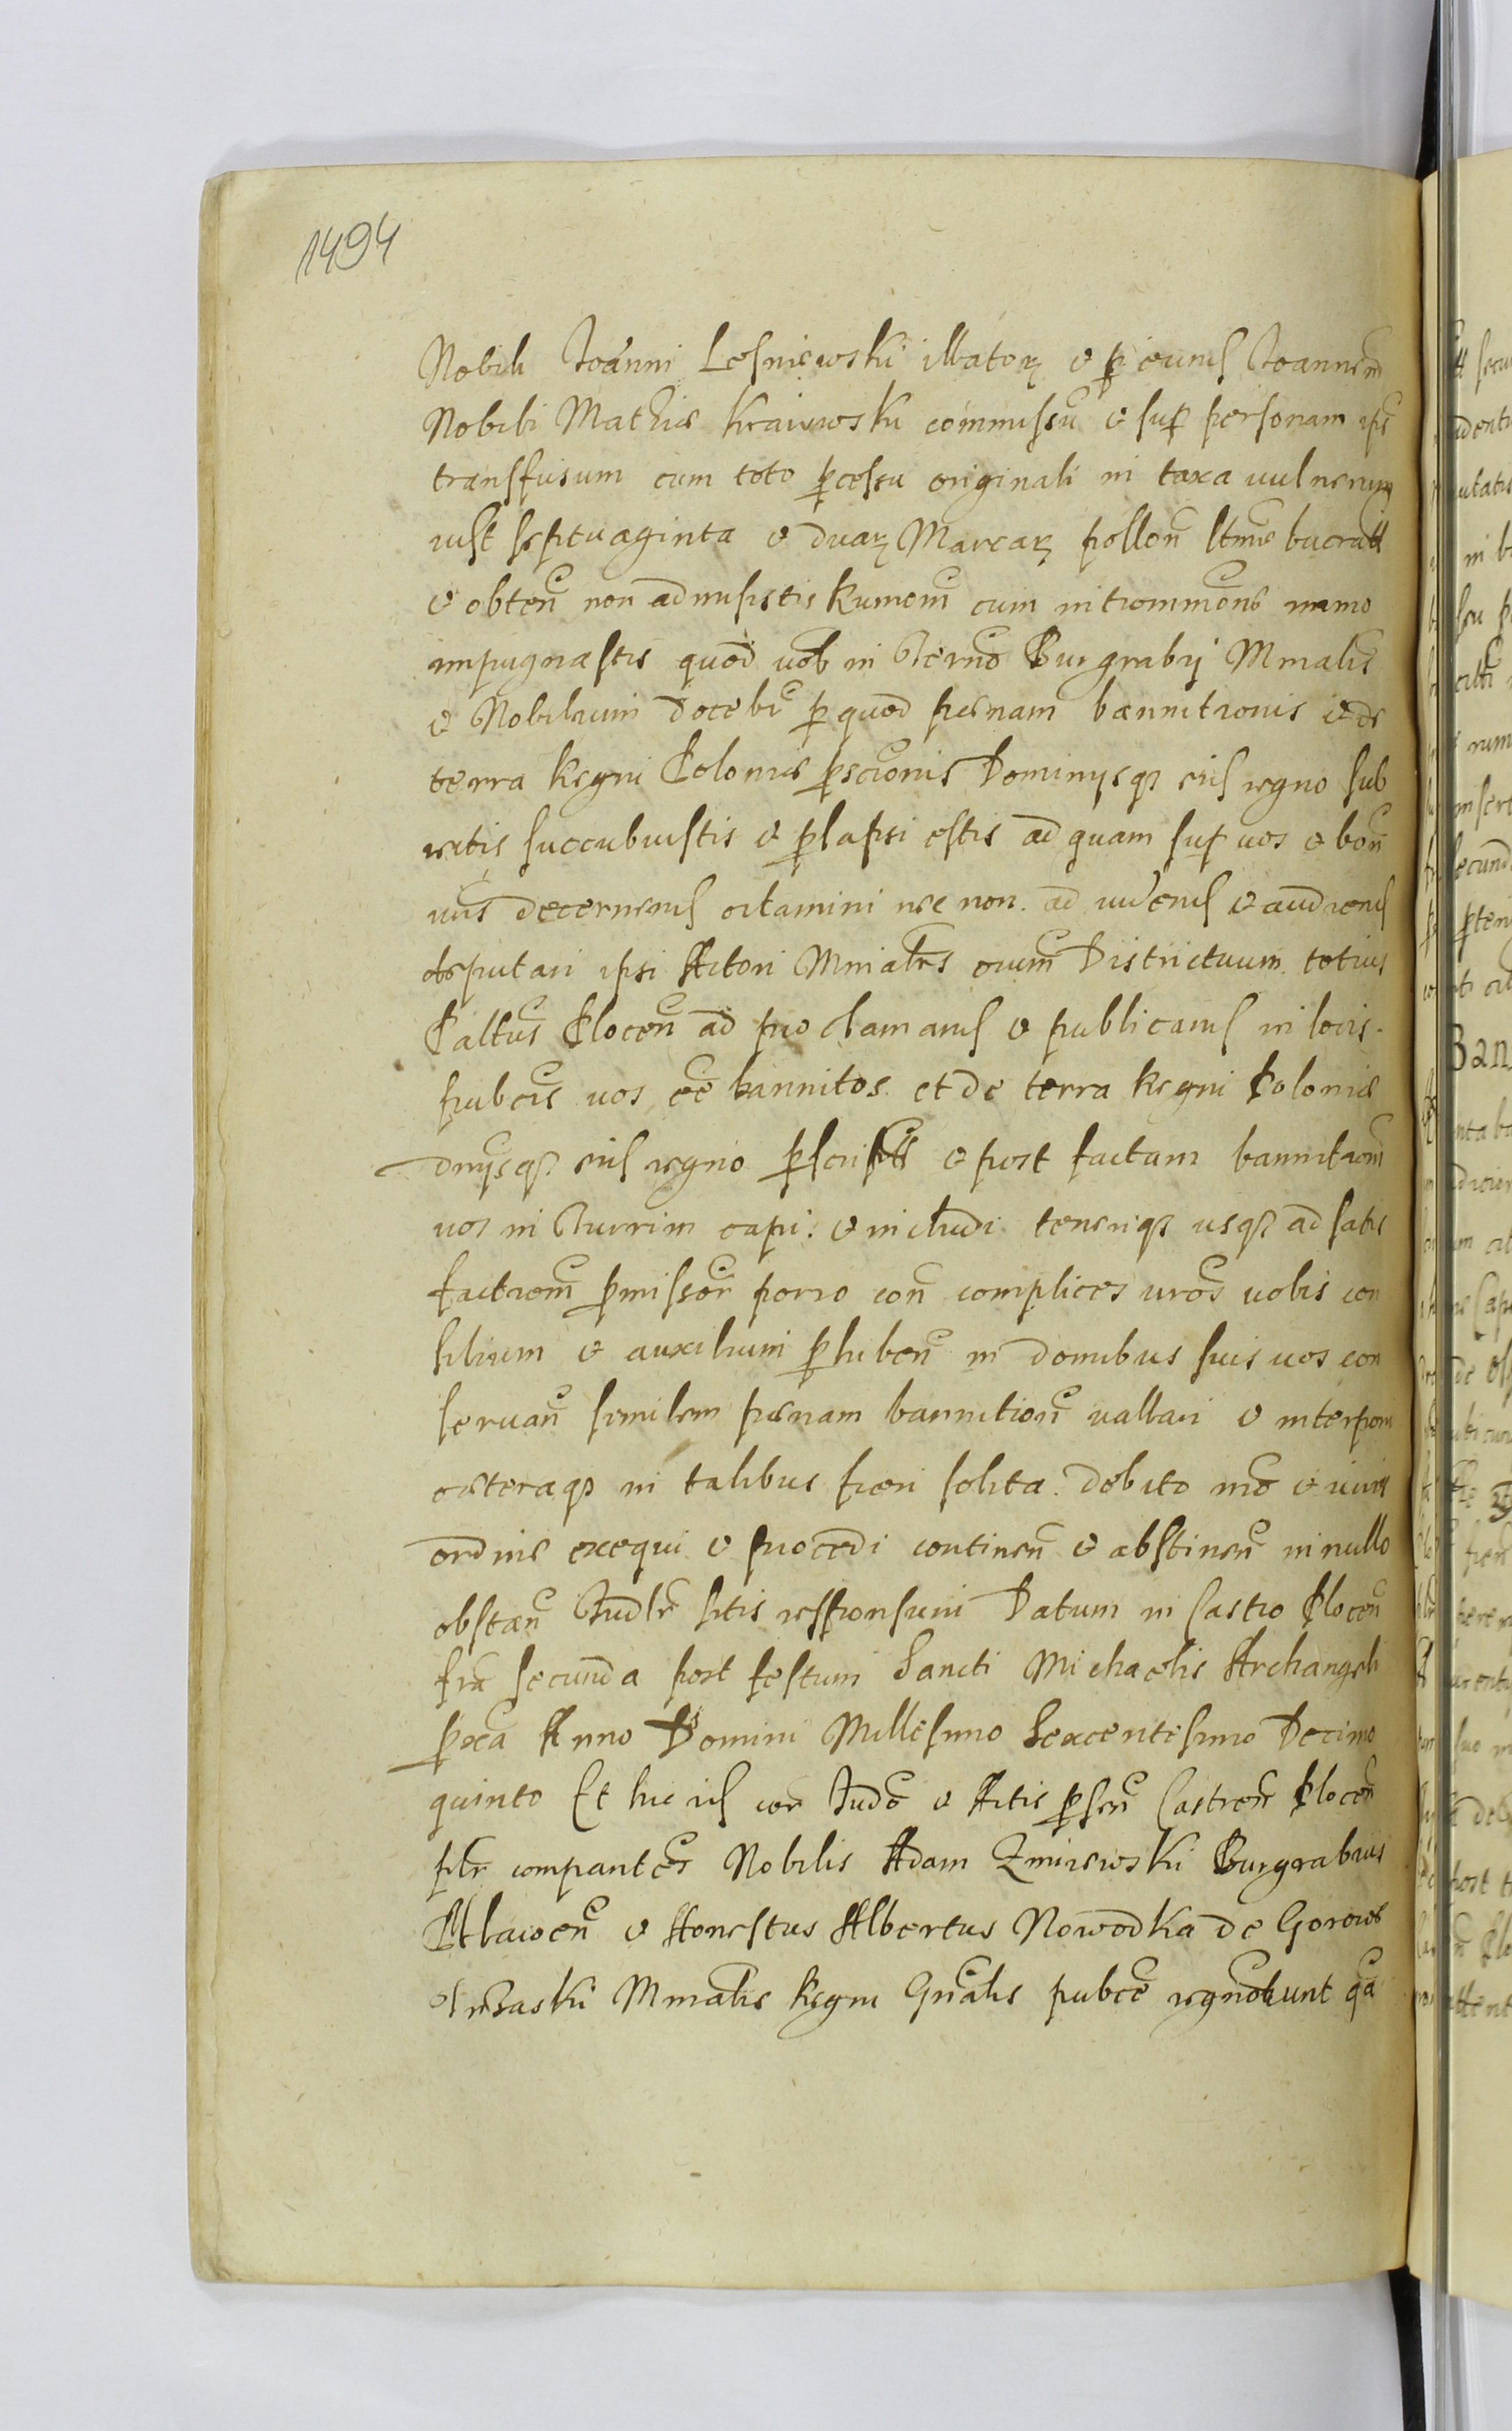 1494
Nobili Joanni Lesniewski illatorꝝ et p eund Joannem
Nobili Mathiæ Kraiewski commissu et sup personam ips
transfusum cum toto pcessu originali in taxa vulnerum
iust septuaginta et duarꝝ Marcarꝝ pollon ltime lucratt
et obten non admisistis Rumom cum intrommone immo
impugnastis quod vob in Termo Burgrabij Mnialis
et Nobilium docebr p quod pœnam bannitionis et de
terra Regni Poloniæ pscionis Dominysqꝫ eius regno sub
iectis succubuistis et plapsi estis ad quam sup vos et bon
vrs decernend citamini nec non ad vidend et audiend
deputari ipsi Actori Mniales oium Districtuum totius
Paltus Plocen ad proclamand et publicand in locis
pubcis vos ee bannitos et de terra Regni Poloniæ
dnysqꝫ eius regno pscriptt et post factam bannitiom
vos in Turrim capi et includi teneriqꝫ usqꝫ ad satis
factiom pmissor porro con complices vros vobis con
silium et auxilium phiben in domibus suis vos con
servan similem pœnam bannition vallari et interpon
cæteraqꝫ in talibus fieri solita debito mo et iuris
ordine exequi et procedi continen et abstinen in nullo
obstan Judlr sitis responsuri Datum in Castro Plocen
fria secunda post festum Sancti Michaelis Archangeli
pxa Anno Domini Millesimo Sexcentesimo Decimo
quinto Et hic id cor Judo et Actis psen Castren Plocen
plr compantes Nobilis Adam Zmiiewski Burgrabius
Mlawen et Honestus Albertus Nowodka de Gorowo
Trzaski Mnialis Regni Gnalis pubce regnoverunt qa